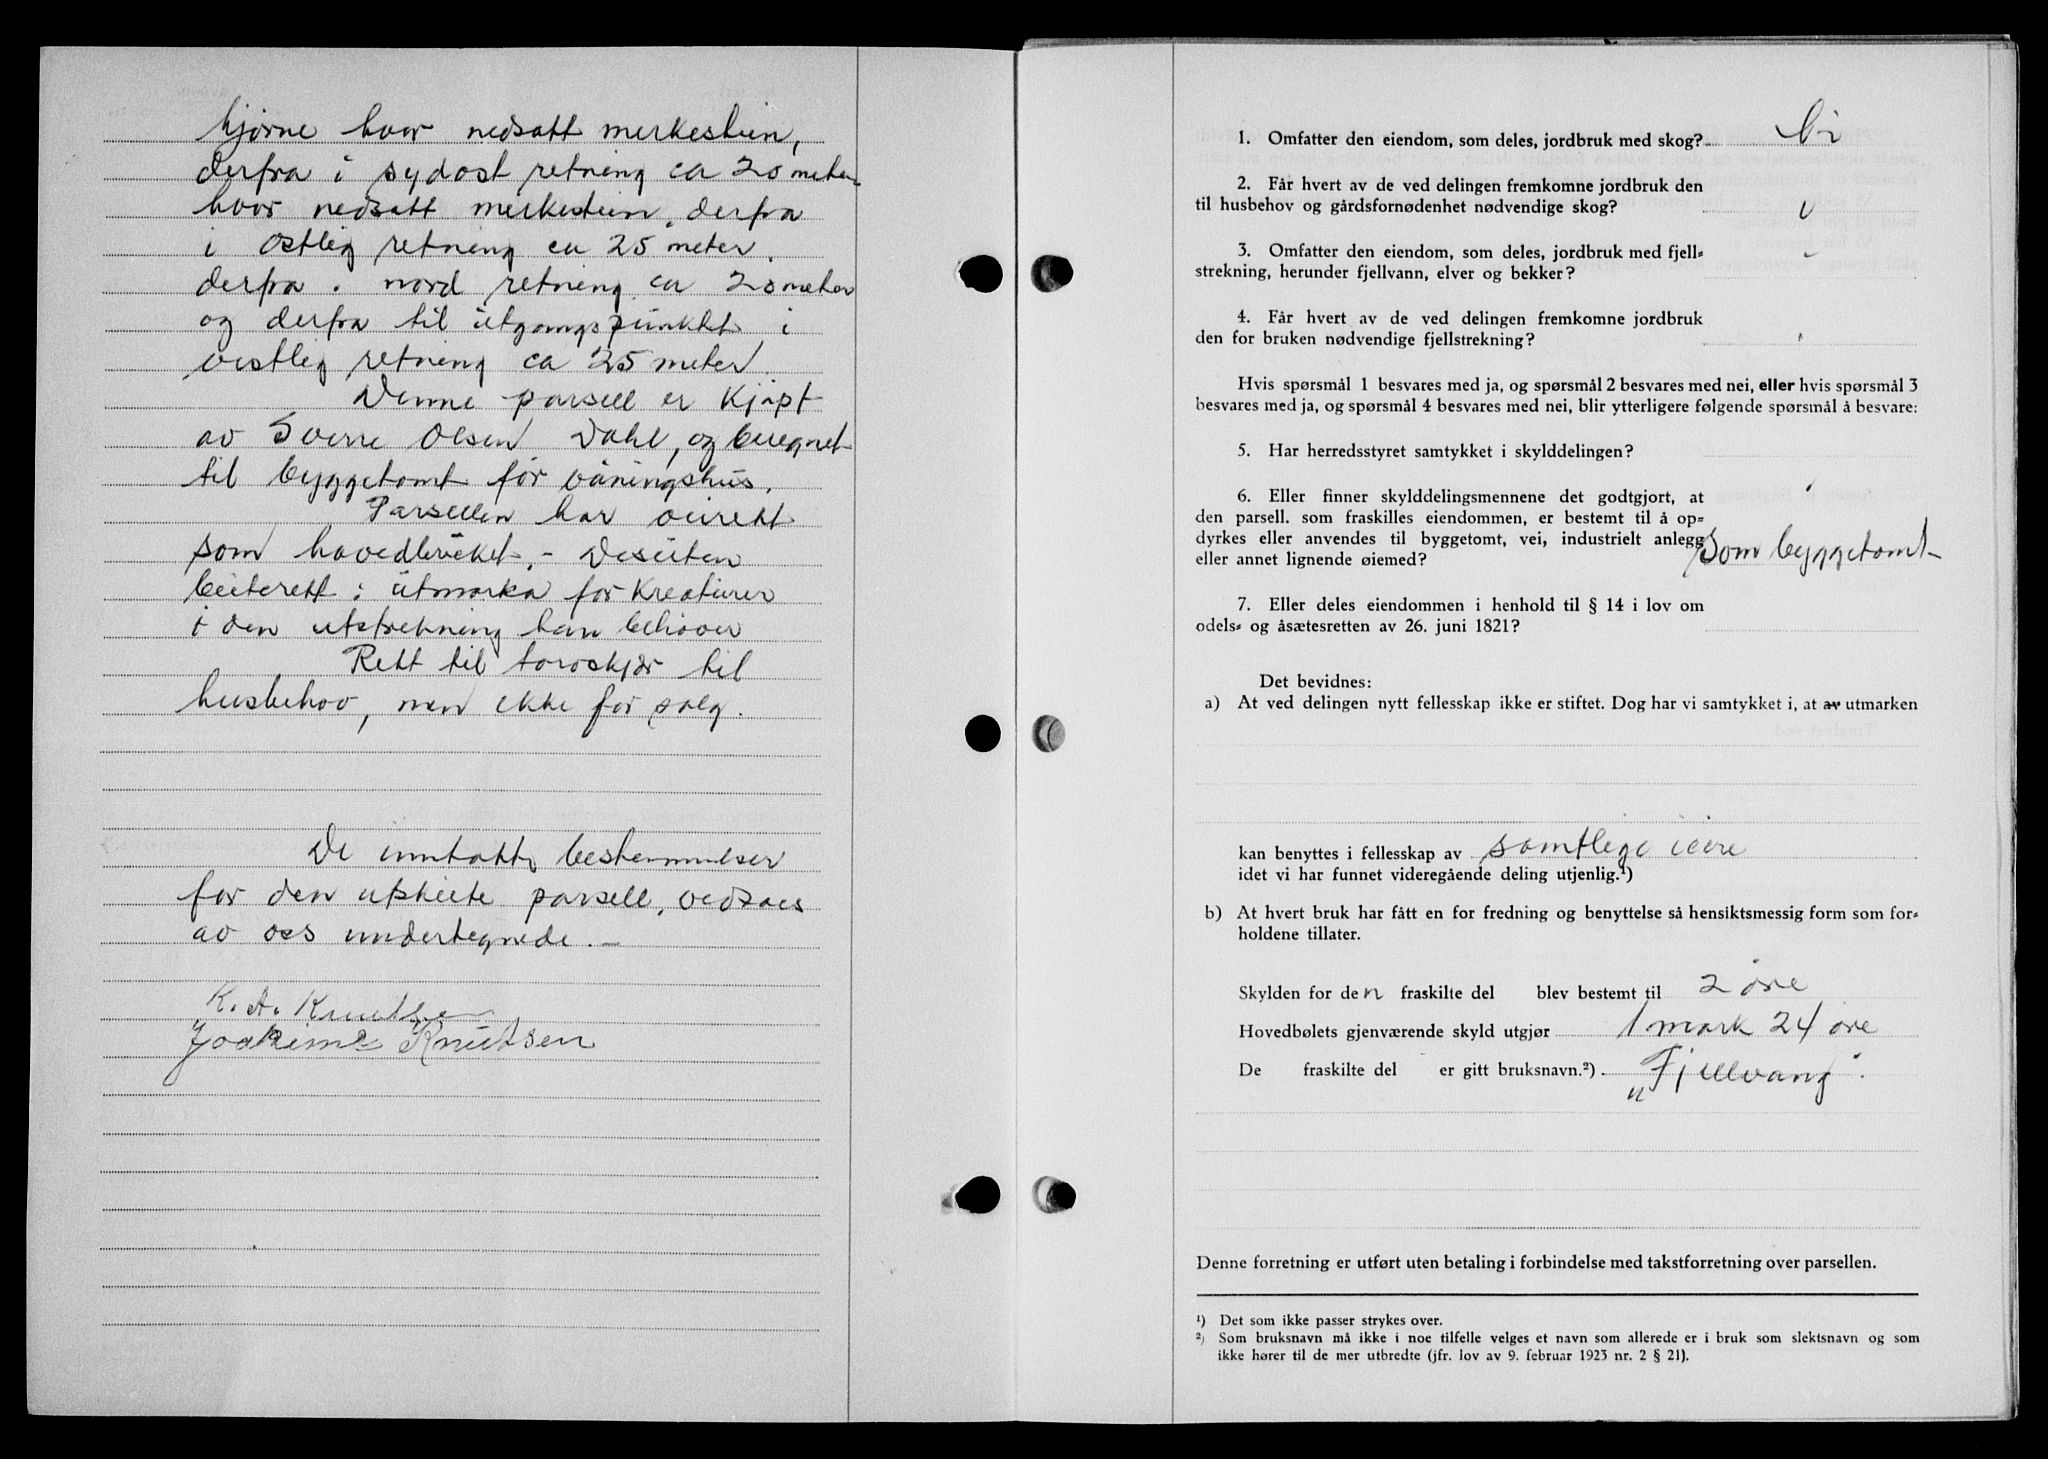 hjørne hvor nedsatt merkestein,
derfra i sydost retning ca 20 meter
hvor nedsatt merkestein, derfra
i østlig retning ca 25 meter.
derfra i nord retning ca 20 meter
og derfra til utgangspunktet i
vestlig retning ca 25 meter.
Denne parsell er kjøpt
av Sverre Olsen Dahl, og beregnet
til byggetomt for våningshus.
Parsellen har veirett
som hovedbruket. - Desuten
beiterett i utmarka for kreaturer
i den utstrekning han behøver
Rett til torvskjær til
husbehov, men ikke for salg.
De inntatte bestemmelser
for den utskilte parsell, vedtaes
av oss undertegnede. -
K. A. Knutsen
Joakim Knutsen
1. Omfatter den eiendom, som deles, jordbruk med skog?
2. Får hvert av de ved delingen fremkomne jordbruk den
til husbehov og gårdsfornødenhet nødvendige skog?
3. Omfatter den eiendom, som deles, jordbruk med fjell=
strekning, herunder fjellvann, elver og bekker?
4. Får hvert av de ved delingen fremkomne jordbruk
den for bruken nødvendige fjellstrekning?
Hvis spørsmål 1 besvares med ja, og spørsmål 2 besvares med nei, eller hvis spørsmål 3
besvares med ja, og spørsmål 4 besvares med nei, blir ytterligere følgende spørsmål å besvare:
5. Har herredsstyret samtykket i skylddelingen?
6. Eller finner skylddelingsmennene det godtgjort, at
den parsell. som fraskilles eiendommen, er bestemt til å op=
dyrkes eller anvendes til byggetomt, vei, industrielt anlegg
eller annet lignende øiemed? Som byggetomt
7. Eller deles eiendommen i henhold til § 14 i lov om
odels= og åsætesretten av 26. juni 1821?
Det bevidnes:
a) At ved delingen nytt fellesskap ikke er stiftet. Dog har vi samtykket i, at av utmarken
kan benyttes i fellesskap av samtlige eiere
idet vi har funnet videregående deling utjenlig.¹)
b) At hvert bruk har fått en for fredning og benyttelse så hensiktsmessig form som for=
holdene tillater.
Skylden for den fraskilte del blev bestemt til 2 øre
Hovedbølets gjenværende skyld utgjør 1 mark 24 øre
De fraskilte del er gitt bruksnavn.²) "Fjellvang".
Denne forretning er utført uten betaling i forbindelse med takstforretning over parsellen.
¹) Det som ikke passer strykes over.
²) Som bruksnavn må ikke i noe tilfelle velges et navn som allerede er i bruk som slektsnavn og som
ikke hører til de mer utbredte (jfr. lov av 9. februar 1923 nr. 2 § 21).